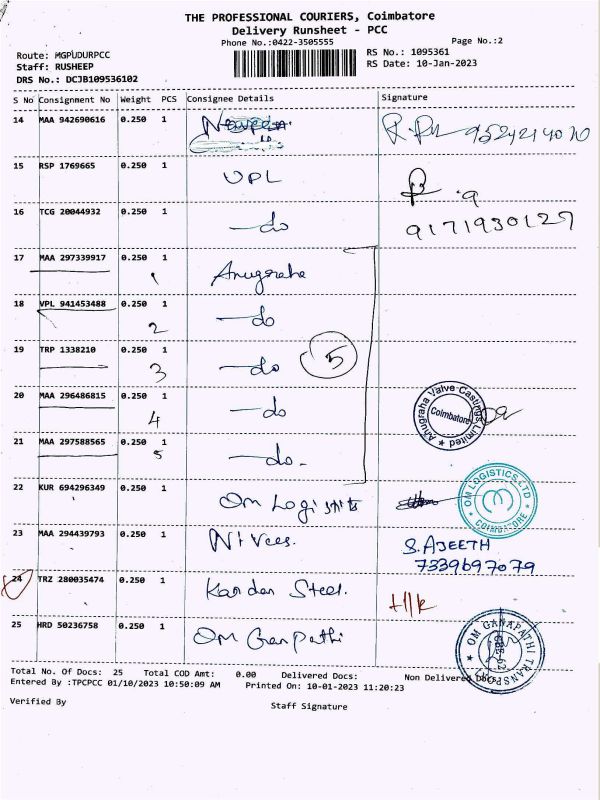 THE PROFESSIONAL COURIERS, Coimbatore
Delivery Runsheet - PCC
Phone No.:0422-3505555 Page No.:2
Route: MGPUDURPCC RS No.: 1095361
Staff: RUSHEEP RS Date: 10-Jan-2023
DRS No.: DCJB109536102
S No Consignment No Weight PCS Consignee Details Signature
14 MAA 942690616 0.250 1 9524214070
15 RSP 1769665 0.250 1 UPL
16 TCG 20044932 0.250 1 do 9171930127
17 MAA 297339917 0.250 1 Anugraha
1
18 VPL 941453488 0.250 1 do
2
19 TRP 1338210 0.250 1 do 5
3
20 MAA 296486815 0.250 1 do Anugraha Valve Castings Limited Coimbatore
4
21 MAA 297588565 0.250 1 do
5
22 KUR 694296349 0.250 1 Om Logistits OM LOGISTICS LTD COIMBATORE
23 MAA 294439793 0.250 1 S. AJEETH
7339697079
24 TRZ 280035474 0.250 1 Kandan Steel.
25 HRD 50236758 0.250 1 Om Ganpathi OM GANAPATHI TRANSPORT
Total No. Of Docs: 25 Total COD Amt: 0.00 Delivered Docs: Non Delivered Docs:
Entered By :TPCPCC 01/10/2023 10:50:09 AM Printed On: 10-01-2023 11:20:23
Verified By Staff Signature